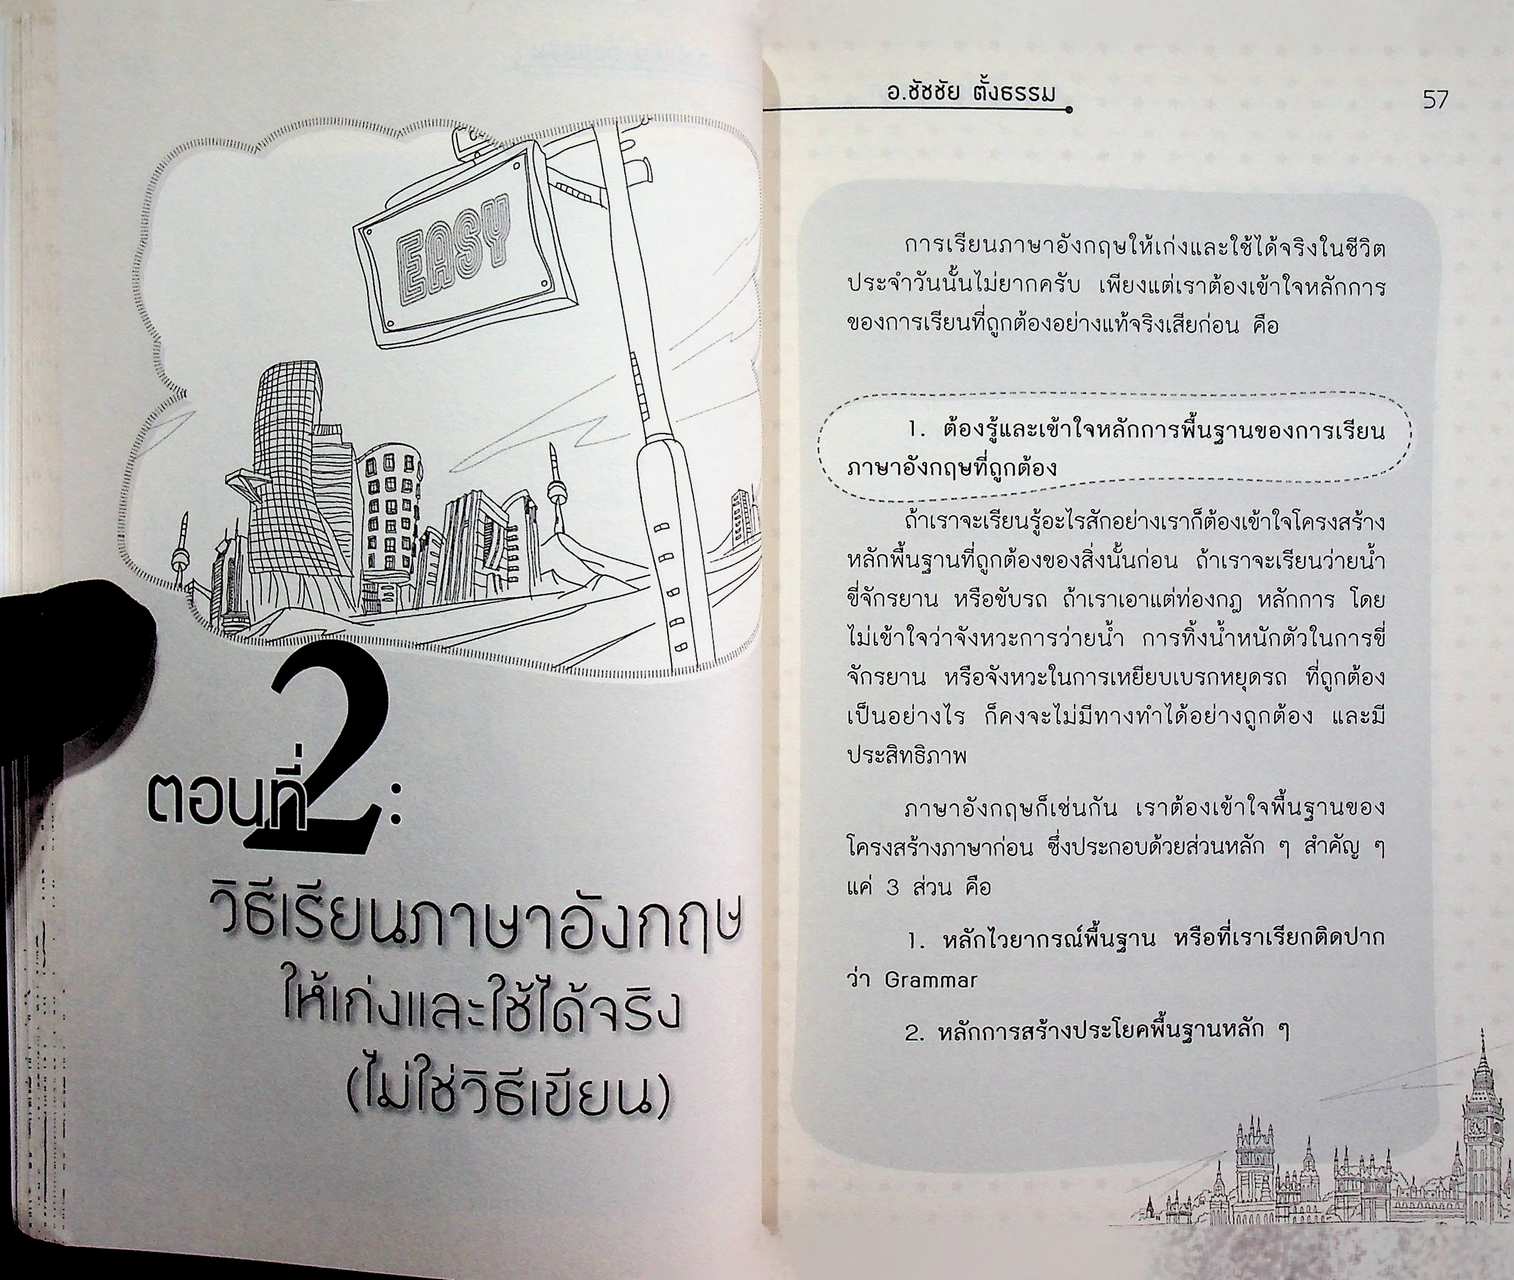 EASY
ตอนที่ 2 :
วิธีเรียนภาษาอังกฤษ
ให้เก่งและใช้ได้จริง
(ไม่ใช่วิธีเขียน)
อ.ชัชชัย ตั้งธรรม
57
การเรียนภาษาอังกฤษให้เก่งและใช้ได้จริงในชีวิต
ประจำวันนั้นไม่ยากครับ เพียงแต่เราต้องเข้าใจหลักการ
ของการเรียนที่ถูกต้องอย่างแท้จริงเสียก่อน คือ
1. ต้องรู้และเข้าใจหลักการพื้นฐานของการเรียน
ภาษาอังกฤษที่ถูกต้อง
ถ้าเราจะเรียนรู้อะไรสักอย่างเราก็ต้องเข้าใจโครงสร้าง
หลักพื้นฐานที่ถูกต้องของสิ่งนั้นก่อน ถ้าเราจะเรียนว่ายน้ำ
ขี่จักรยาน หรือขับรถ ถ้าเราเอาแต่ท่องกฎ หลักการ โดย
ไม่เข้าใจว่าจังหวะการว่ายน้ำ การทิ้งน้ำหนักตัวในการขี่
จักรยาน หรือจังหวะในการเหยียบเบรกหยุดรถ ที่ถูกต้อง
เป็นอย่างไร ก็คงจะไม่มีทางทำได้อย่างถูกต้อง และมี
ประสิทธิภาพ
ภาษาอังกฤษก็เช่นกัน เราต้องเข้าใจพื้นฐานของ
โครงสร้างภาษาก่อน ซึ่งประกอบด้วยส่วนหลัก ๆ สำคัญ ๆ
แค่ 3 ส่วน คือ
1. หลักไวยากรณ์พื้นฐาน หรือที่เราเรียกติดปาก
ว่า Grammar
2. หลักการสร้างประโยคพื้นฐานหลัก ๆ